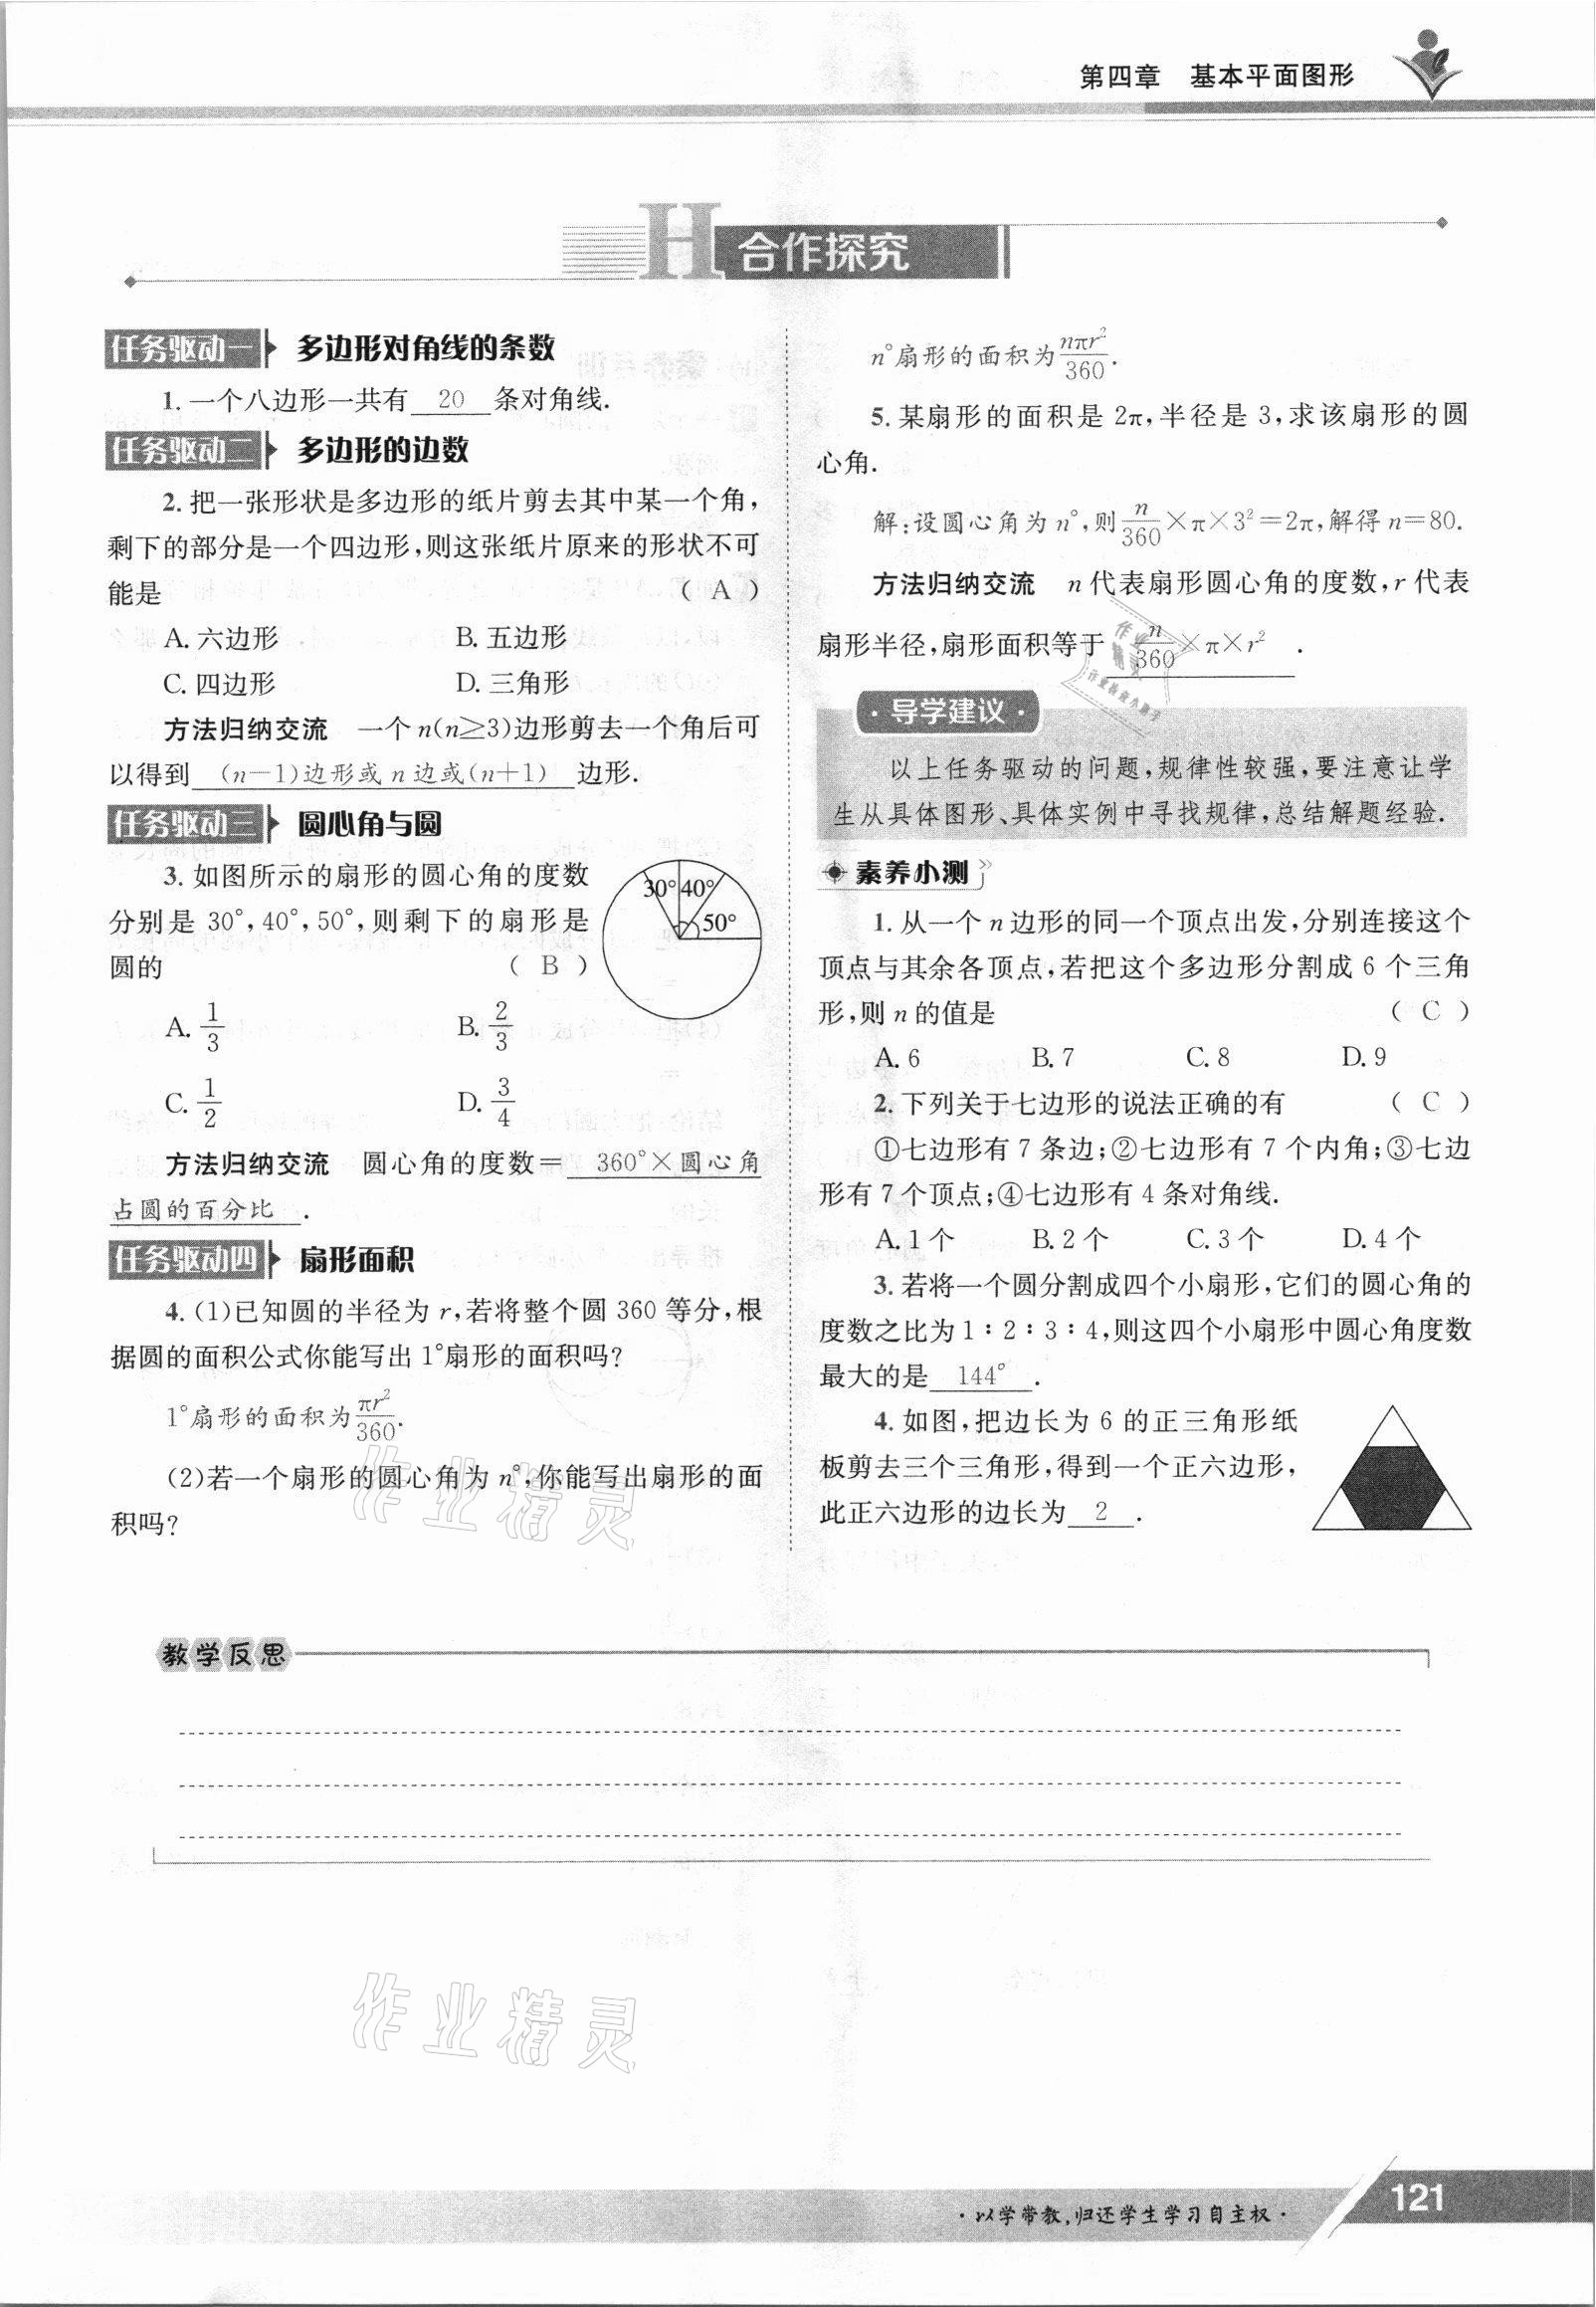 第四章 基本平面图形
H 合作探究
任务驱动一 多边形对角线的条数
1. 一个八边形一共有 20 条对角线.
任务驱动二 多边形的边数
2. 把一张形状是多边形的纸片剪去其中某一个角,
剩下的部分是一个四边形,则这张纸片原来的形状不可
能是 ( A )
A. 六边形 B. 五边形
C. 四边形 D. 三角形
方法归纳交流 一个 n(n≥3)边形剪去一个角后可
以得到 (n−1)边形或 n 边或(n+1) 边形.
任务驱动三 圆心角与圆
3. 如图所示的扇形的圆心角的度数
分别是 30°,40°,50°,则剩下的扇形是
圆的 ( B )
30° 40°
50°
A. 1/3 B. 2/3
C. 1/2 D. 3/4
方法归纳交流 圆心角的度数= 360°×圆心角
占圆的百分比 .
任务驱动四 扇形面积
4. (1)已知圆的半径为 r,若将整个圆 360 等分,根
据圆的面积公式你能写出 1°扇形的面积吗?
1°扇形的面积为πr²/360.
(2)若一个扇形的圆心角为 n°,你能写出扇形的面
积吗?
n°扇形的面积为nπr²/360.
5. 某扇形的面积是 2π,半径是 3,求该扇形的圆
心角.
解:设圆心角为 n°,则n/360×π×3²=2π,解得 n=80.
方法归纳交流 n 代表扇形圆心角的度数,r 代表
扇形半径,扇形面积等于 n/360×π×r² .
·导学建议·
以上任务驱动的问题,规律性较强,要注意让学
生从具体图形、具体实例中寻找规律,总结解题经验.
素养小测
1. 从一个 n 边形的同一个顶点出发,分别连接这个
顶点与其余各顶点,若把这个多边形分割成 6 个三角
形,则 n 的值是 ( C )
A. 6 B. 7 C. 8 D. 9
2. 下列关于七边形的说法正确的有 ( C )
①七边形有 7 条边;②七边形有 7 个内角;③七边
形有 7 个顶点;④七边形有 4 条对角线.
A. 1 个 B. 2 个 C. 3 个 D. 4 个
3. 若将一个圆分割成四个小扇形,它们的圆心角的
度数之比为 1∶2∶3∶4,则这四个小扇形中圆心角度数
最大的是 144° .
4. 如图,把边长为 6 的正三角形纸
板剪去三个三角形,得到一个正六边形,
此正六边形的边长为 2 .
作业精灵
教学反思
作业精灵
·以学带教,归还学生学习自主权·
121